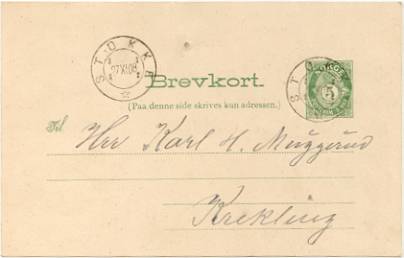 STOKKE
27 XI 08
Brevkort.
NORGE
5
STOKKE
(Paa denne side skrives kun adressen.)
Til
Herr Karl H. Muggerud
Krekling